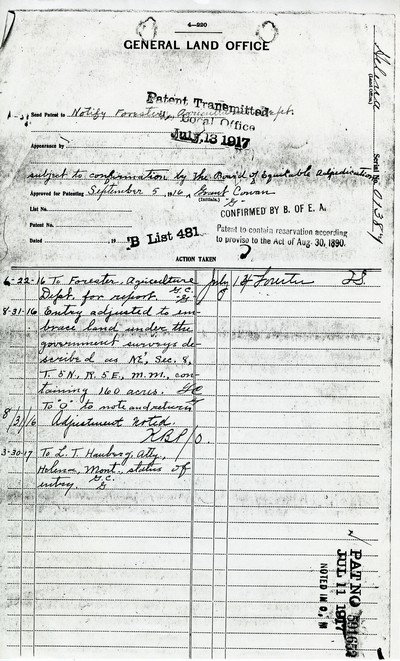 4—320
GENERAL LAND OFFICE
Helena
(Land Office.)
Serial No. 01387
Patent Transmitted
Local Office
July 13 1917
Send Patent to Notify Forester, Agriculture Dept.
Appearance by
subject to confirmation by the Board of Equitable Adjudication
Approved for Patenting September 5, 1916, Grant Cowan
(Initials.)
"G"
List No.
CONFIRMED BY B. OF E. A.
Patent No.
Patent to contain reservation according
to proviso to the Act of Aug. 30, 1890.
Dated , 19
"B" List 481
ACTION TAKEN
6-22-16 To Forester, Agriculture
Dept. for report. G.C.
"G"
July
8-31-16 Entry adjusted to em-
brace land under the
government surveys de-
scribed as
Sec. 8,
T. 5 N., R. 5 E., M. M., con-
taining 160 acres. GC
To "O" to note and return
8/31/16 Adjustment Noted.
O.
3-30-17 To L. T.
Atty.,
Helena, Mont., status of
entry. G.C.
G
PAT NO
JUL 11 1917
NOTED IN